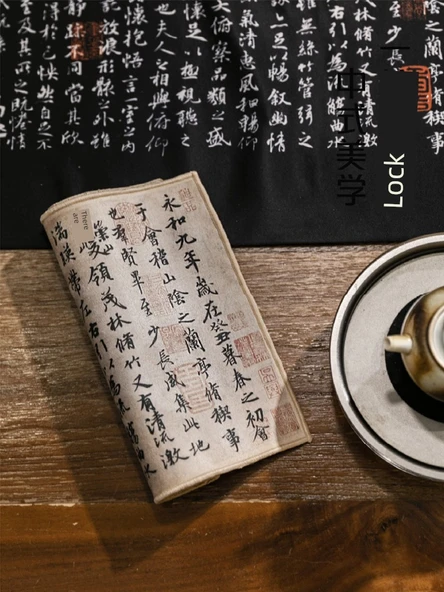 中式美学
Lock
之蘭亭脩禊事
少長
林脩竹又有清流激
右引以為流觴曲水
雖無絲竹管弦之
足以暢叙幽情
氣清惠風和暢仰
俯察品類之盛
足以極視聽之
也夫人之相與俯仰
懷抱悟言一室之内
放浪形骸之外雖
靜躁不同當其欣
得於己快然自足不
及其所之既惓
永和九年歲在癸丑暮春之初會
于會稽山陰之蘭亭脩禊事
也羣賢畢至少長咸集此地
領茂林脩竹又有清流激
湍暎帶左右引以為流觴曲水
there
are